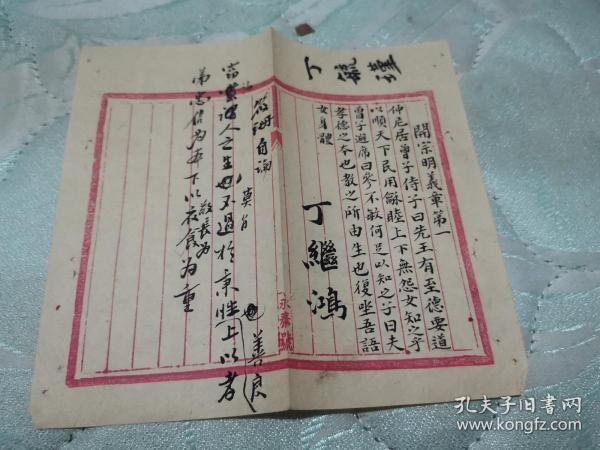 丁毓瑾
開宗明義章第一
仲尼居曾子侍子曰先王有至德要道
以順天下民用龢睦上下無怨女知之乎
曾子避席曰參不敏何足以知之子曰夫
孝德之本也教之所由生也復坐吾語
女身體
丁繼鴻
永泰號
自論
莫貝
也善良
嘗謂人之生也不過於秉性上以孝
敬長为
弟忠信为本下以衣食为重
孔夫子旧书网
www.kongfz.com